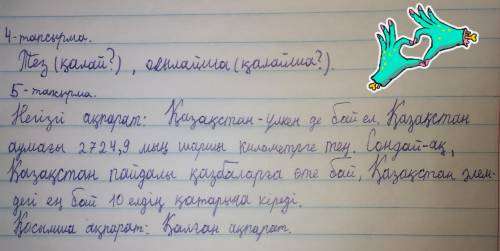 4-тапсырма.
Тез (қалай?), осылайша (қалайша?).
5-тапсырма.
Негізгі ақпарат: Қазақстан-үлкен де бай ел. Қазақстан
аумағы 2724,9 мың шаршы километрге тең. Сондай-ақ,
Қазақстан пайдалы қазбаларға өте бай, Қазақстан әлем-
дегі ең бай 10 елдің қатарына кіреді.
Қосымша ақпарат: Қалған ақпарат.